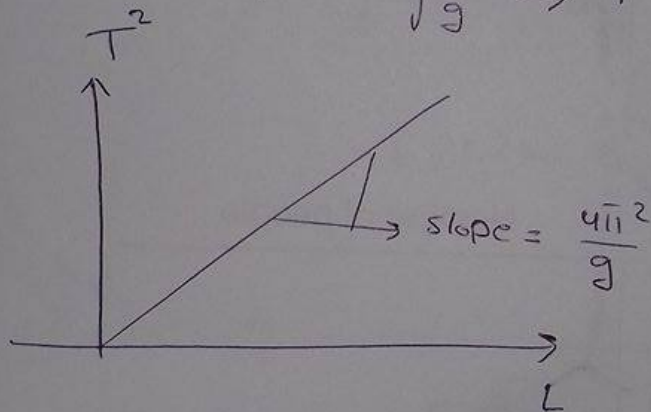 T²
√g
slope = 4π²/g
L